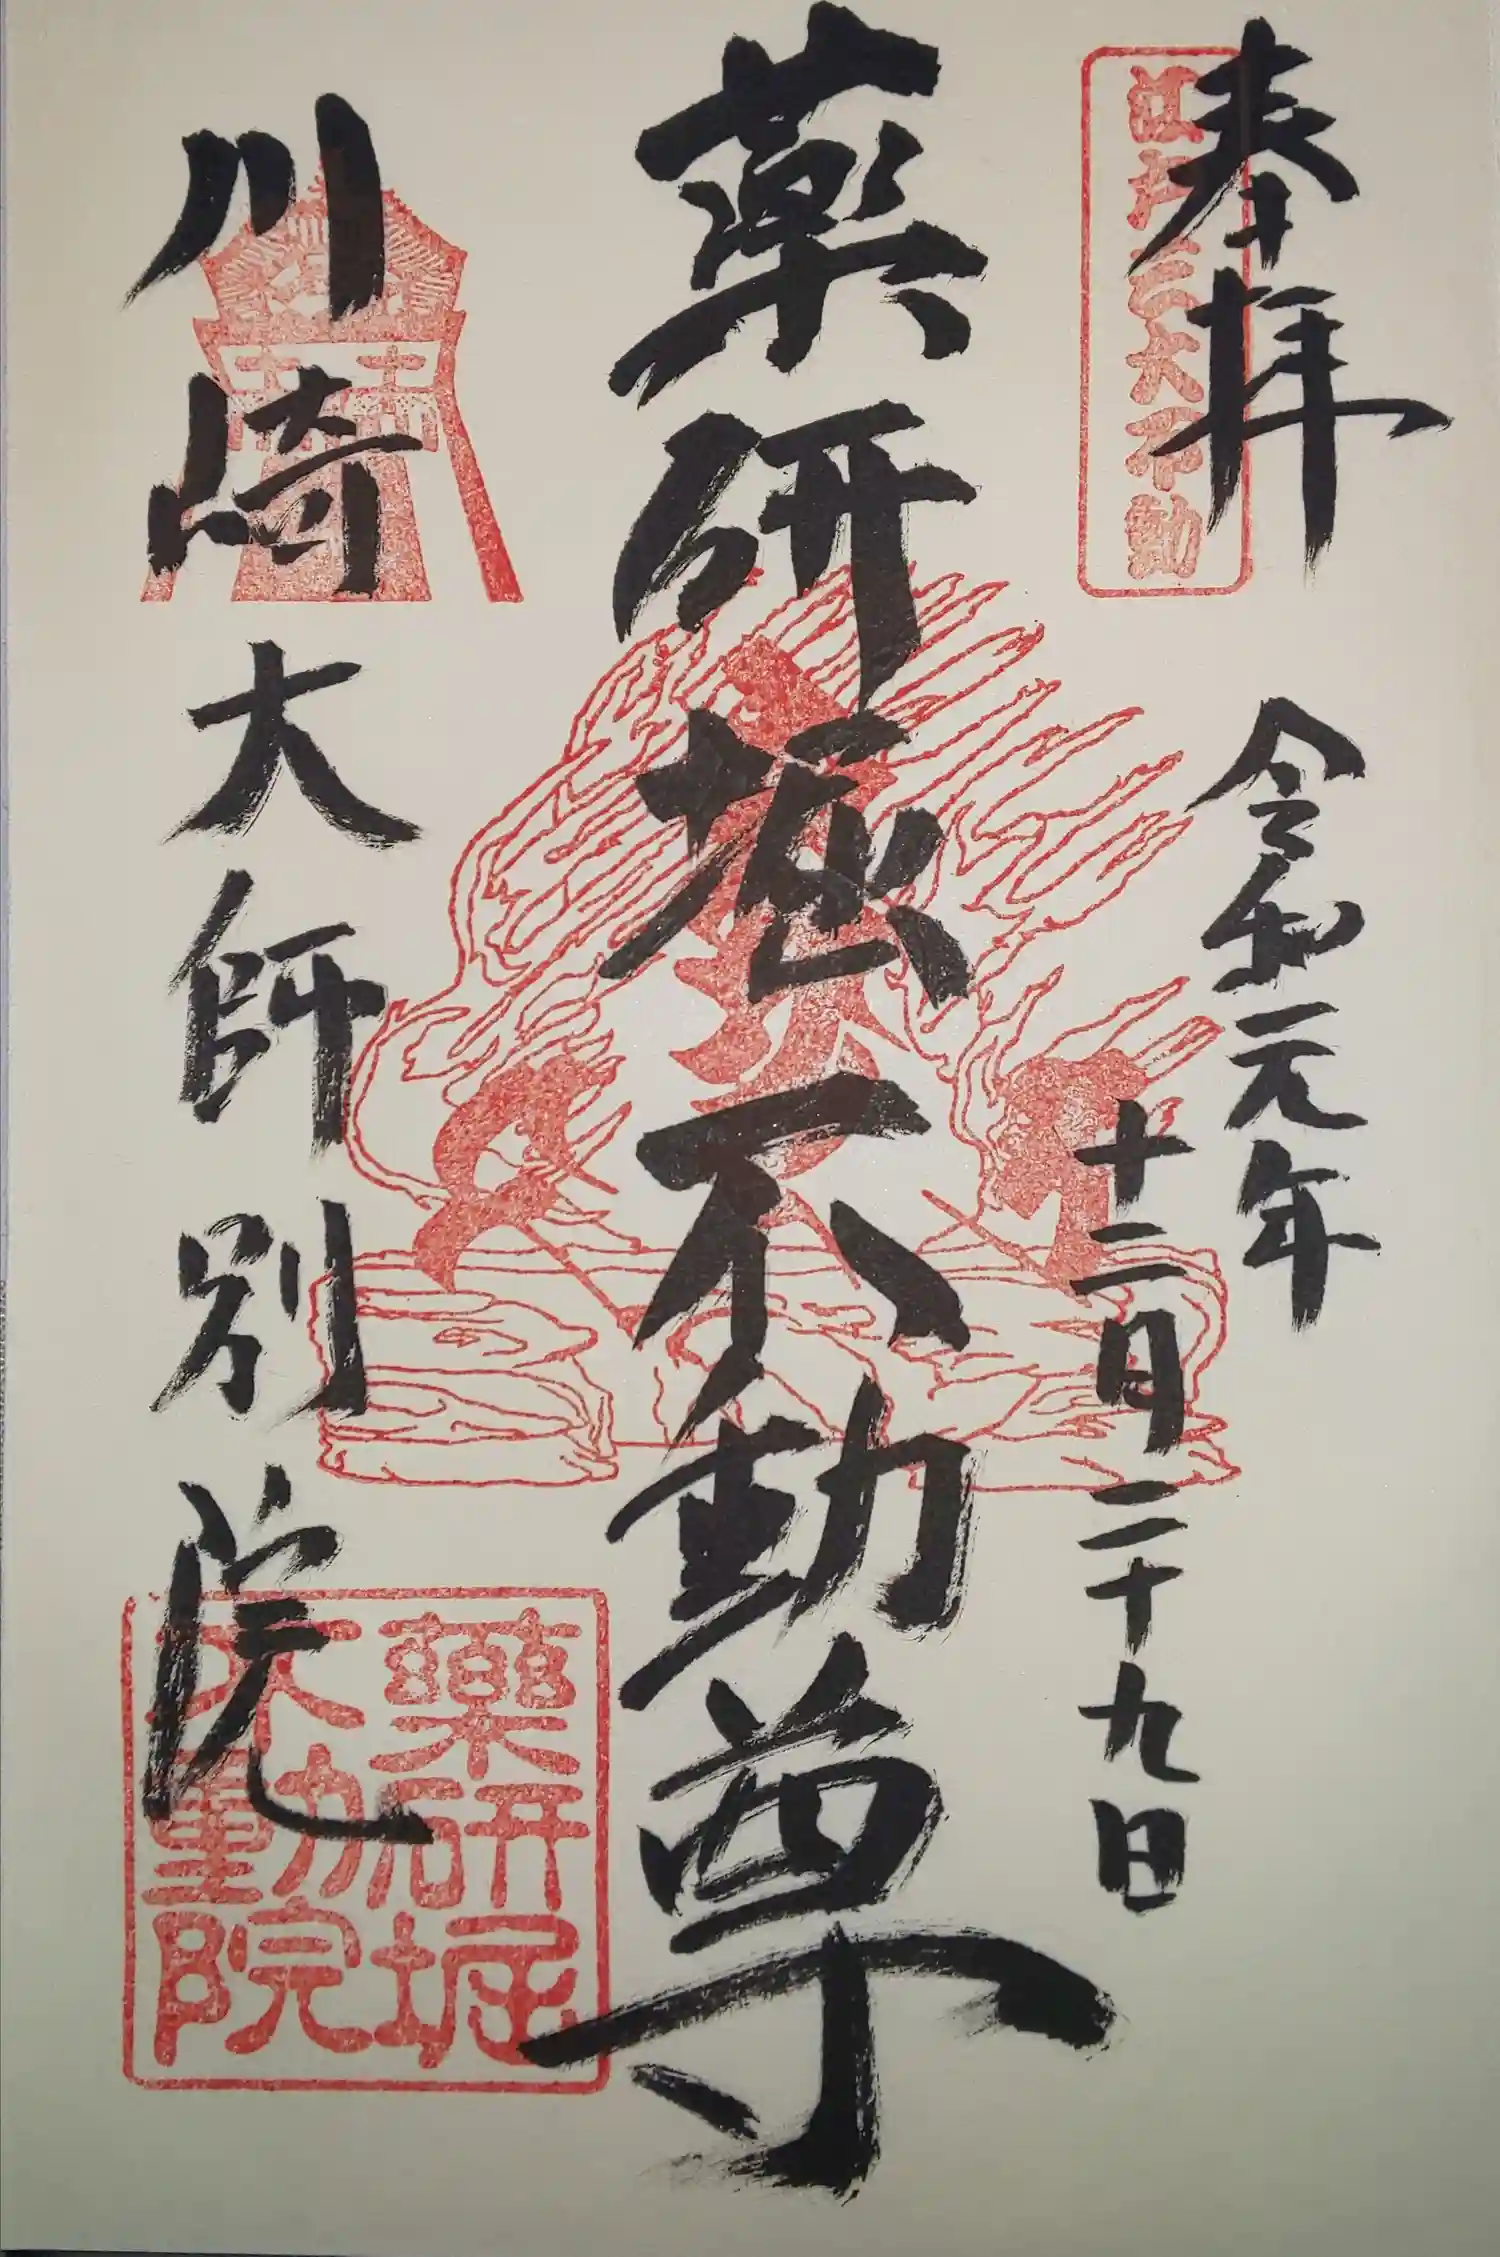 奉拝
江戸三大不動
令和元年
十二月二十九日
薬研堀不動尊
川崎大師別院
薬研堀
不動院